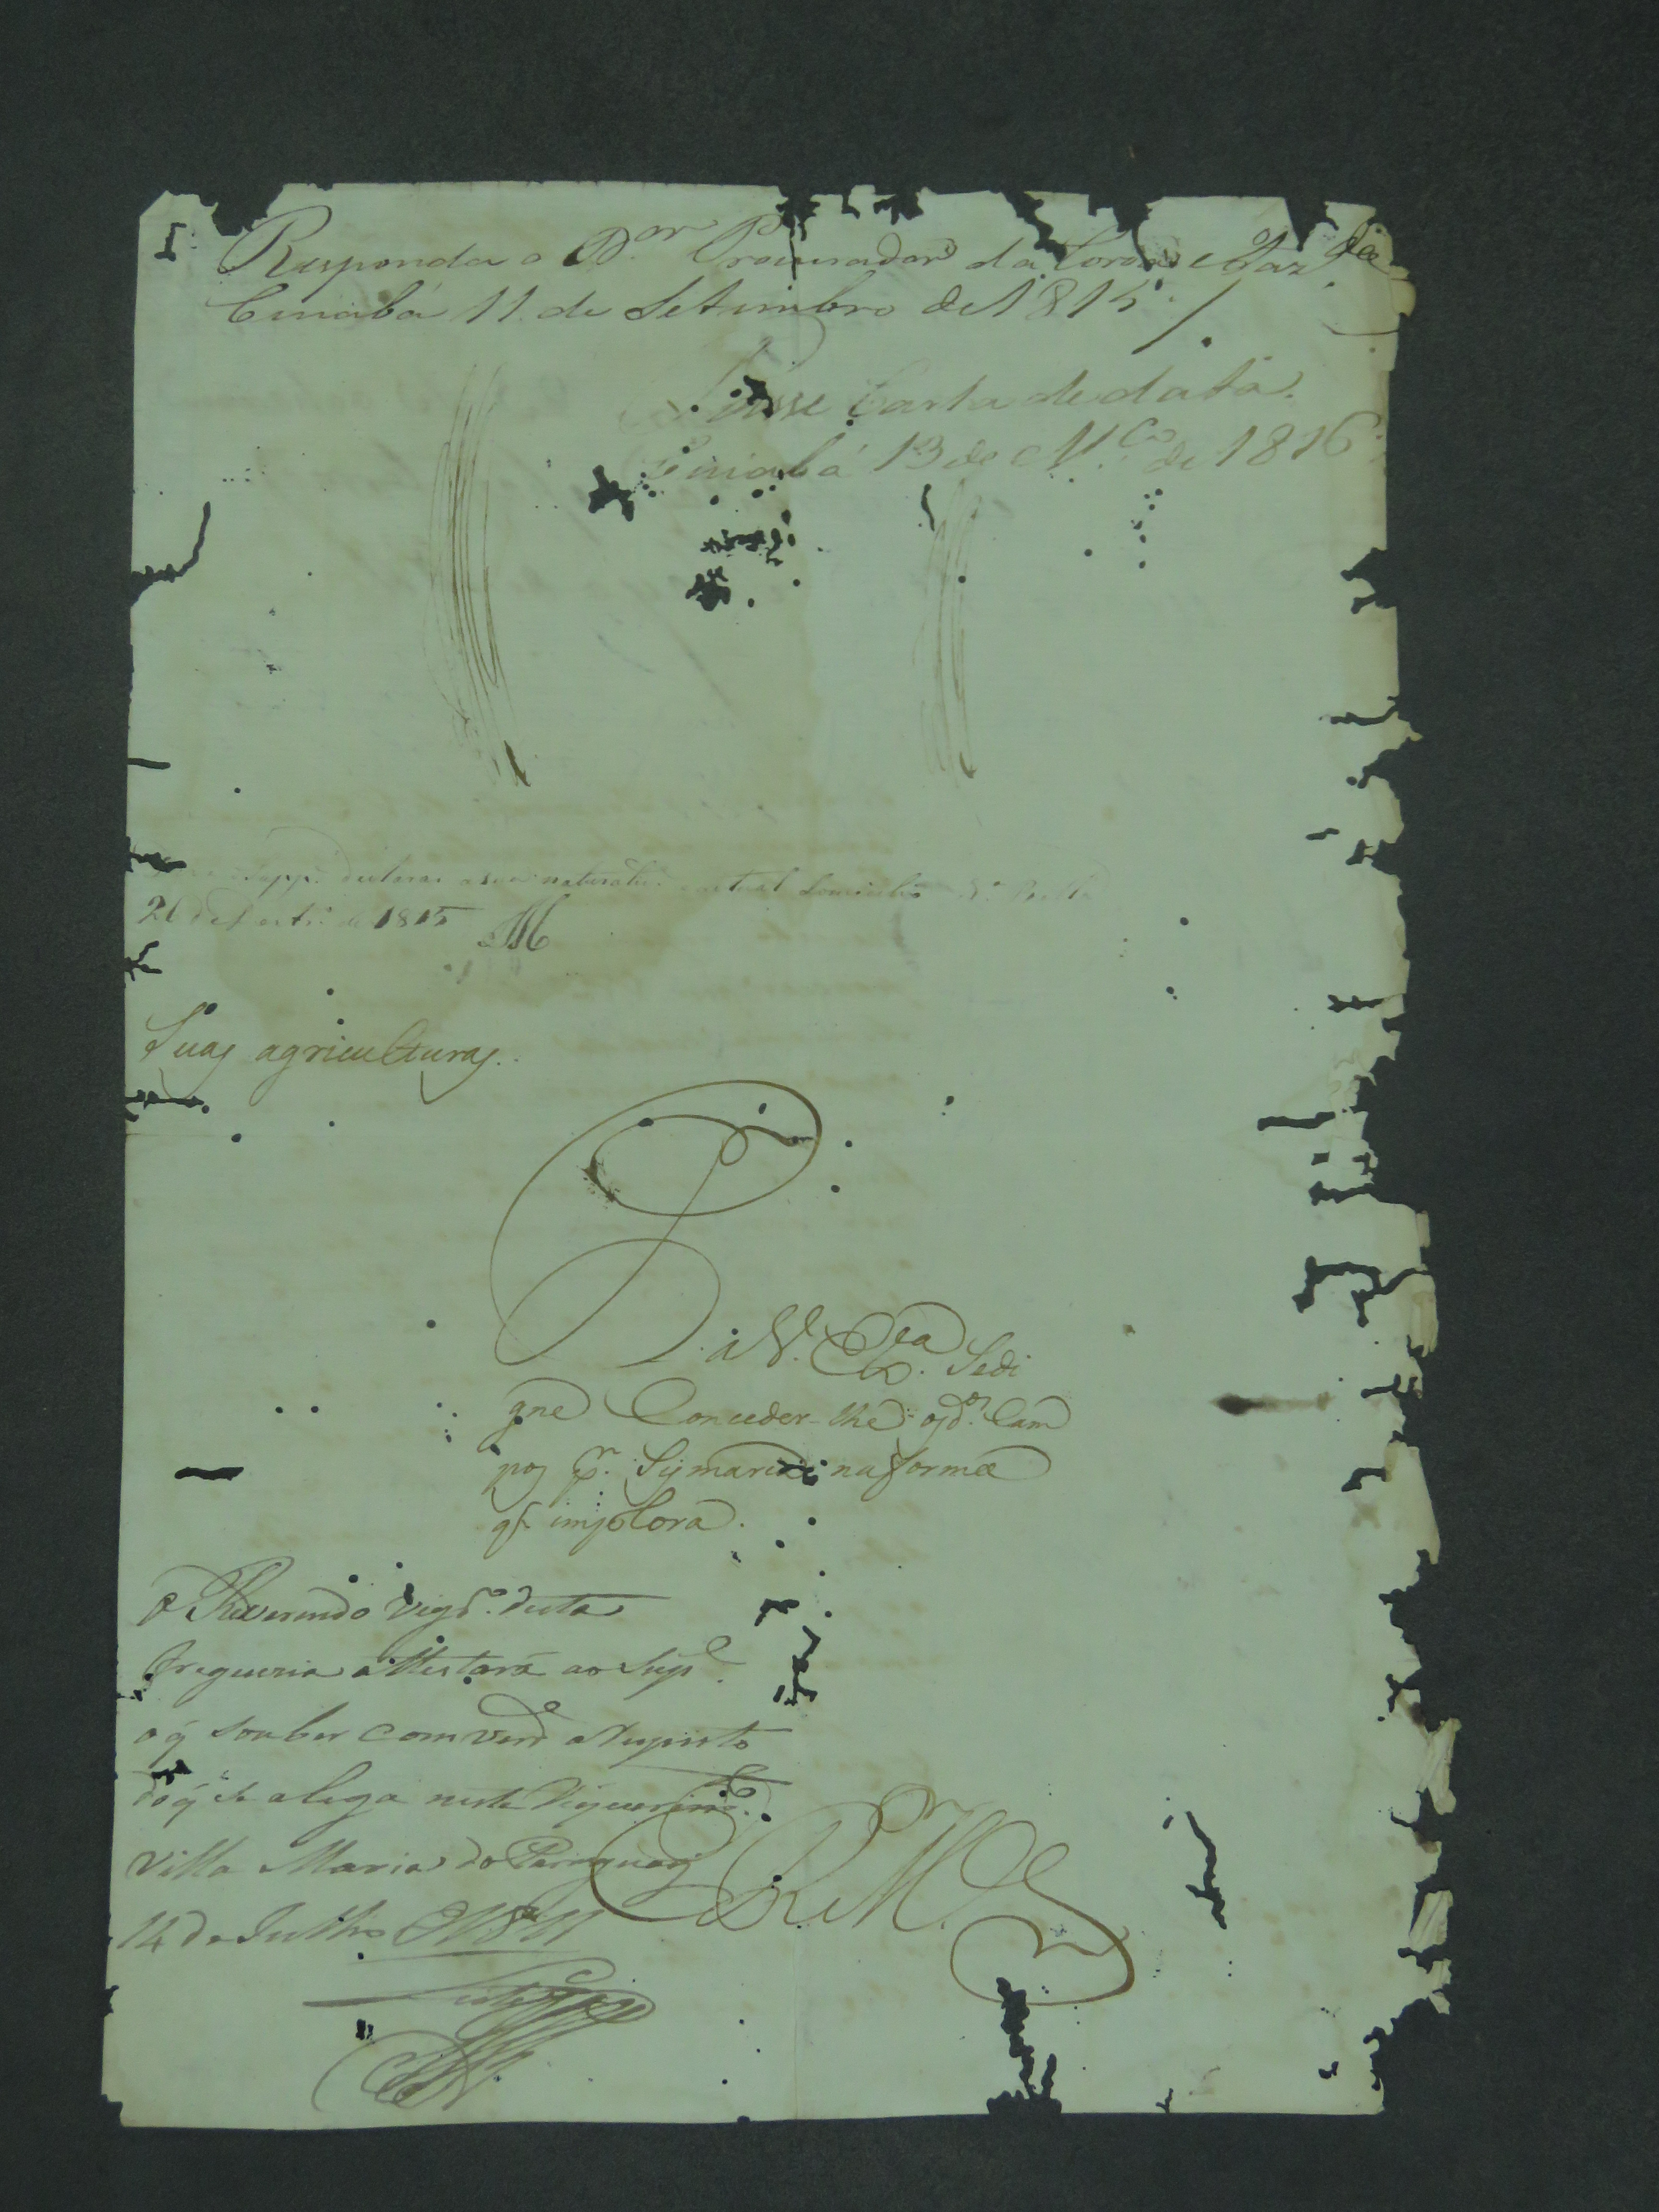 Responda o D.or Procurador da Coroa e Faz.da
Cuiabá 11 de Setembro de 1815
Passe Carta de data.
Cuiabá 13 de M.ço de 1816
Supp.e declarar a sua naturalid.e e actual domicilio
26 de 1815
Suas agriculturas.
P. a V. Ex.ca Sedi
gne Conceder-lhe os d.os Cam
pos p.r Sismaria na forma
q.' implora.
O Reverendo Vigr.o desta
Freguezia attestará ao Sup.e
o q' souber com verd.e a Respeito
do q' se alega neste Requerim.to
E R M.ce
Villa Maria do Paraguay
14 de Julho